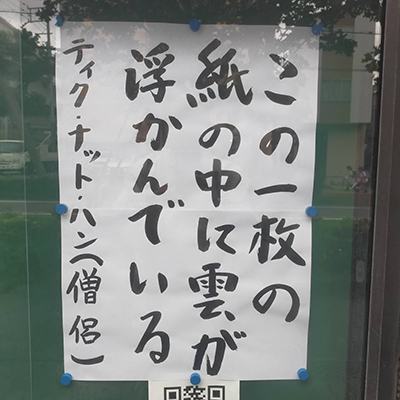 この一枚の
紙の中に雲が
浮かんでいる
ティク・ナット・ハン(僧侶)